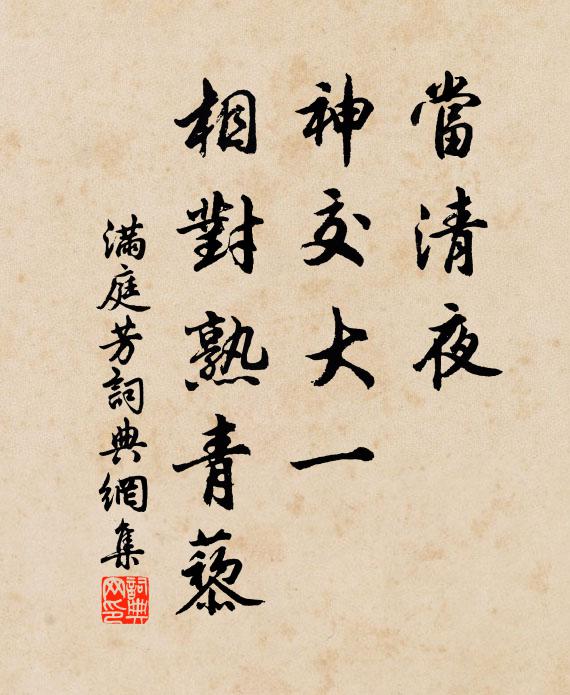 當清夜
神交大一
相對熟青藜
滿庭芳詞典網集
詞典网印